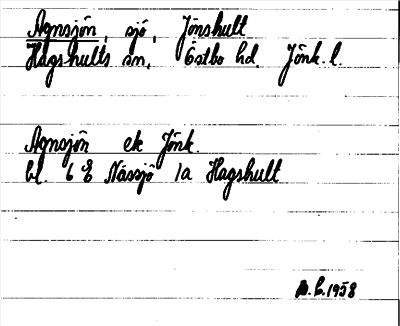 Agnsjön, sjö, Jönshult
Hagshults sn. Östbo hd. Jönk. l.
Agnsjön ek Jönk.
bl. 6 E Nässjö 1a Hagshult
1958